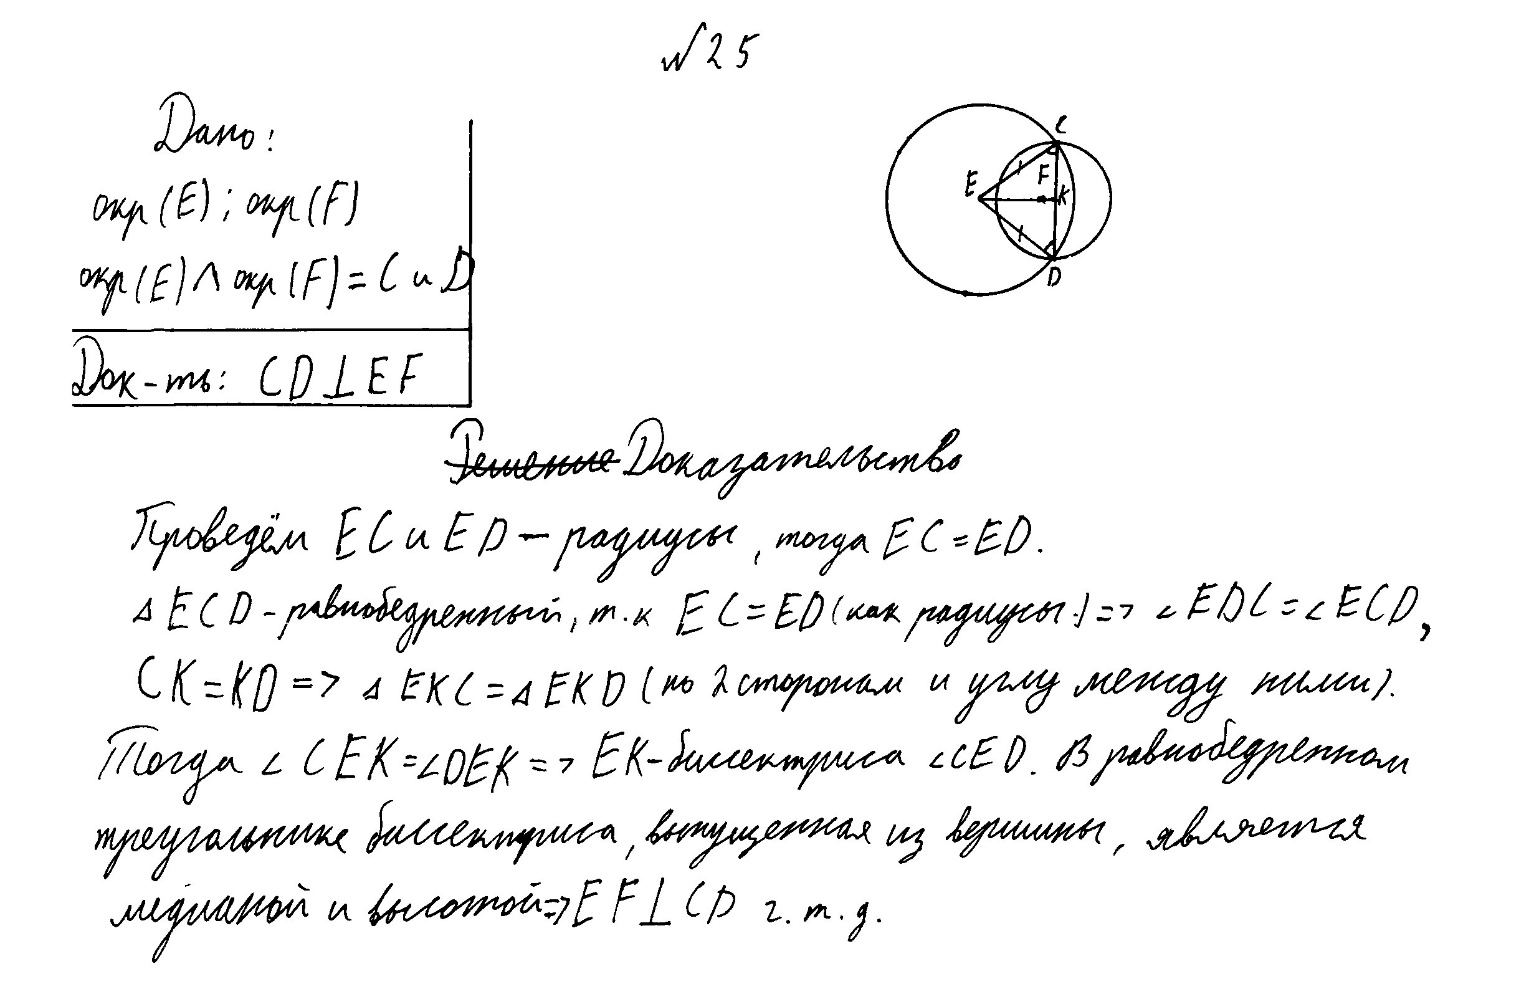 №25
Дано:
окр(E); окр(F)
окр(E)∧окр(F)=C и D
Док-ть: CD⊥EF
C
E
F
K
D
Решение Доказательство
Проведём EC и ED – радиусы, тогда EC=ED.
△ECD-равнобедренный, т.к EC=ED(как радиусы.)=>∠EDC=∠ECD,
CK=KD=>△EKC=△EKD(по 2 сторонам и углу между ними).
Тогда ∠CEK=∠DEK=>EK-биссектриса ∠CED. В равнобедренном
треугольнике биссектриса, выпущенная из вершины, является
медианой и высотой=>EF⊥CD ч.т.д.